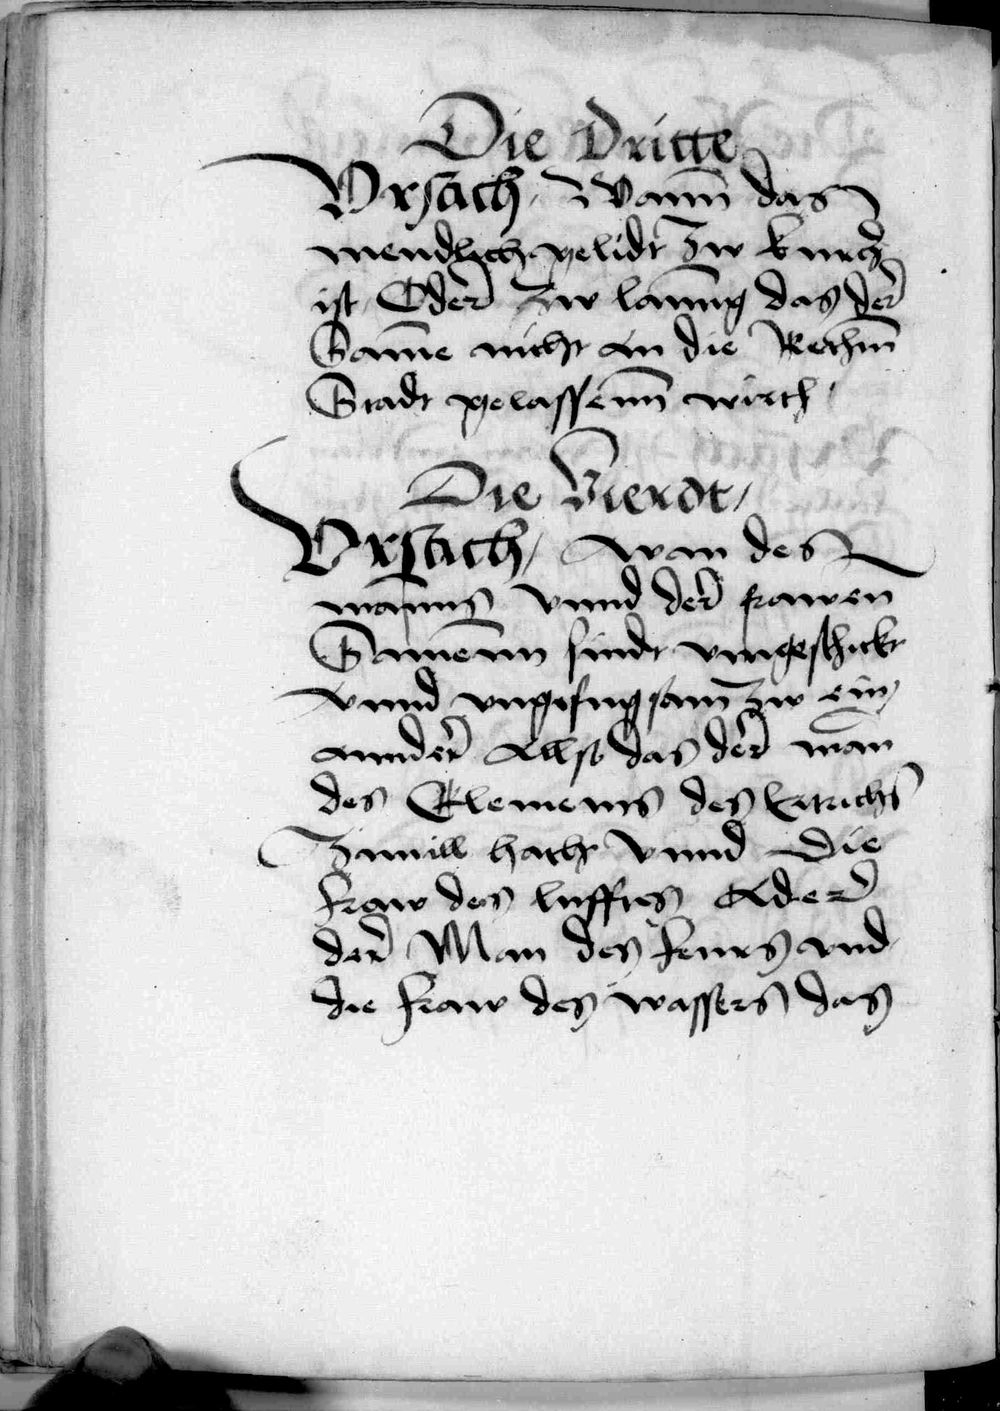 Die Dritte
Vrsach, Wann das
mendlich gelidt Zw kurcz
ist, Oder Zw lanng das der
Same nicht an die Rechnn
Stadt gelassenn wirth,
Die Vierdt,
Vrsach, wan des
manns vnnd der frawen
Samenn sindt vngeschickt
vnnd vngefugsam zw ein,
annder Allso das der man
des Elements des Ertrichs
Zwuill hatht vnnd die
fraw des lufftes Ader
der Man des feurs vnd
die fraw des wassers das